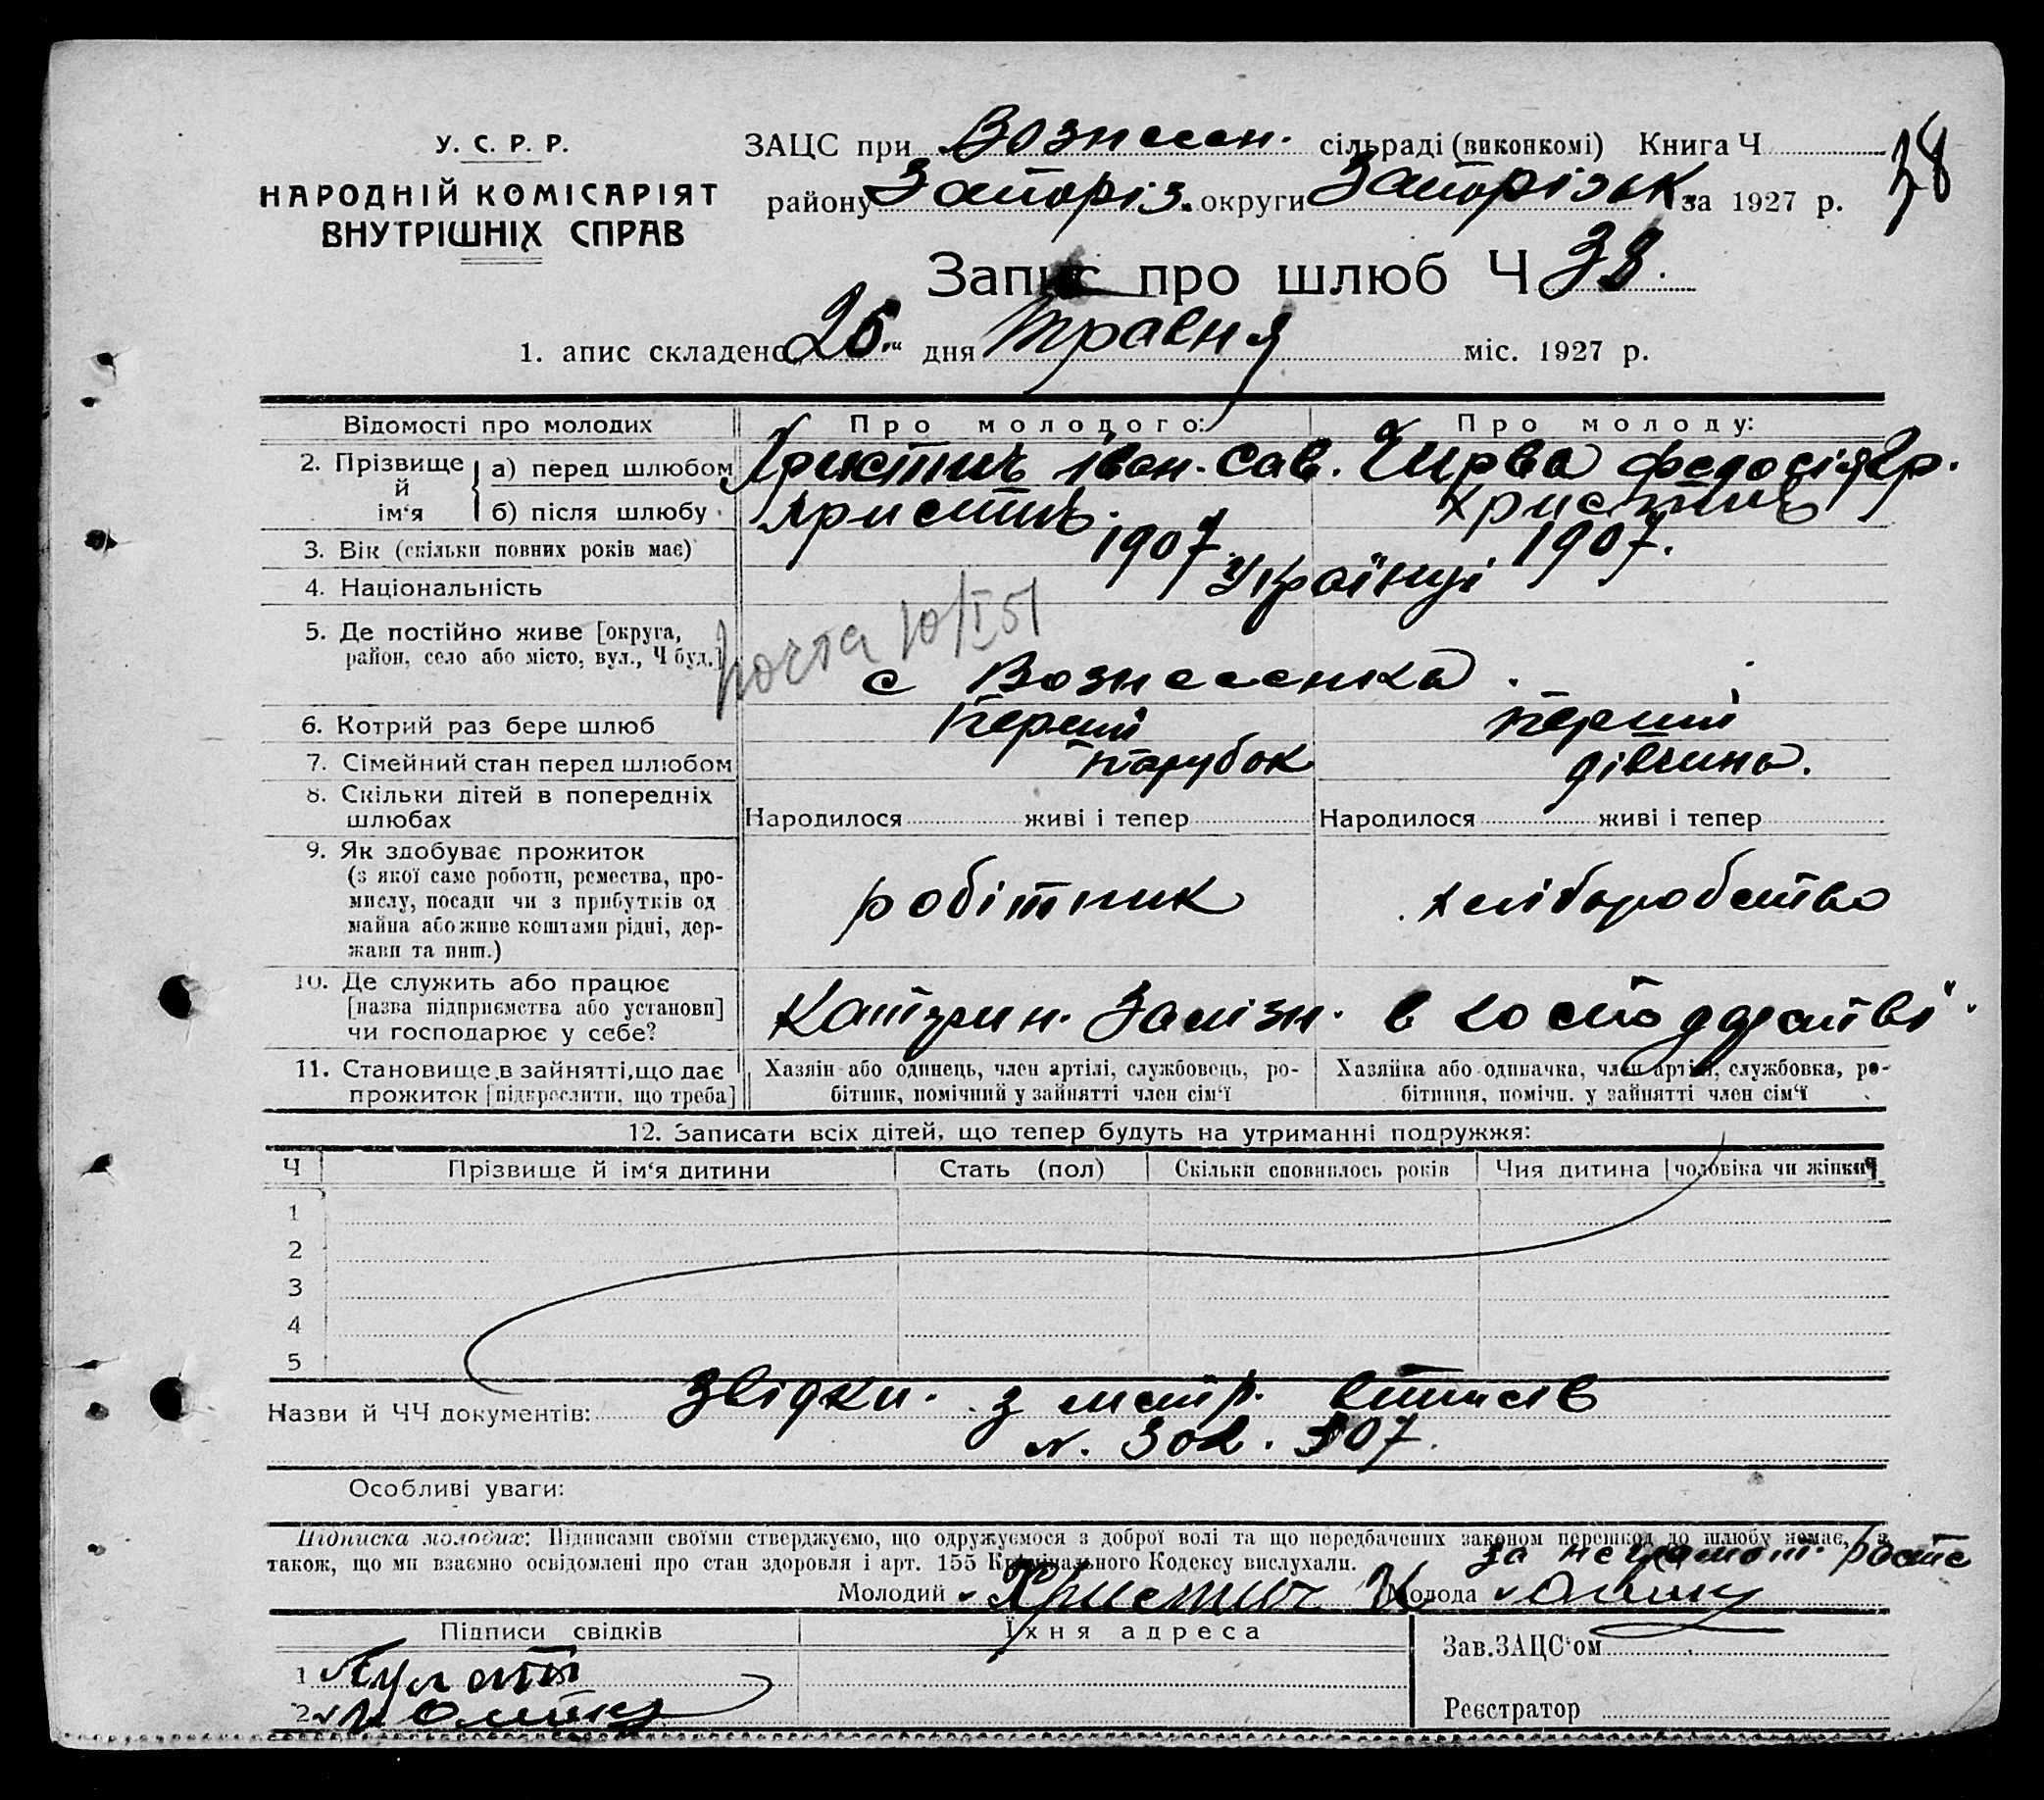 У. С. Р. Р.
НАРОДНІЙ КОМІСАРІЯТ
ВНУТРІШНІХ СПРАВ
ЗАЦС при Вознесен. сільраді (виконкомі) Книга Ч
38
району Запоріз. округи Запорізьк. за 1927 р.
Запис про шлюб Ч 38.
1. апис складено 25 дня Травня міс. 1927 р.
Відомості про молодих Про молодого: Про молоду:
2. Прізвище й ім‘я
а) перед шлюбом Христич Іван. Сав. Чирва Федосія Гр.
б) після шлюбу Христич. Христич
3. Вік (скільки повних років має) 1907. 1907.
4. Національність Українці
5. Де постійно живе [округа,
район, село або місто, вул., Ч буд.]
почта 10/I 51
с Вознесенка.
6. Котрий раз бере шлюб перший перший
7. Сімейний стан перед шлюбом парубок дівчина.
8. Скільки дітей в попередніх
шлюбах
Народилося живі і тепер Народилося живі і тепер
9. Як здобуває прожиток
(з якої само роботи, ремества, про-
мислу, посади чи з прибутків од
майна або живе коштами рідні, дер-
жави та инш.)
робітник хліборобство
10. Де служить або працює
[назва підприємства або установи]
чи господарює у себе?
Катерин. Залізн. в господарстві.
11. Становище в зайнятті, що дає
прожиток [підкреслити, що треба]
Хазяїн або одинець, член артілі, службовець, ро-
бітник, помічний у зайнятті член сім‘ї
Хазяйка або одиначка, член артілі, службовка, ро-
бітниця, помічн. у зайнятті член сім‘ї
12. Записати всіх дітей, що тепер будуть на утриманні подружжя:
Ч Прізвище й ім‘я дитини Стать (пол) Скільки сповнилось років Чия дитина [чоловіка чи жінки]
1
2
3
4
5
Назви й ЧЧ документів: Звідки. з метр. виписів
N. 302. 307.
Особливі уваги:
Підписка молодих: Підписами своїми стверджуємо, що одружуємося з доброї волі та що передбачених законом перешкод до шлюбу немає, а
також, що ми взаємно освідомлені про стан здоровля і арт. 155 Крімінального Кодексу вислухали.
за неграмот.
Молодий Христич И Молода
Підписи свідків Їхня адреса
Зав. ЗАЦС‘ом
1
2
Реєстратор